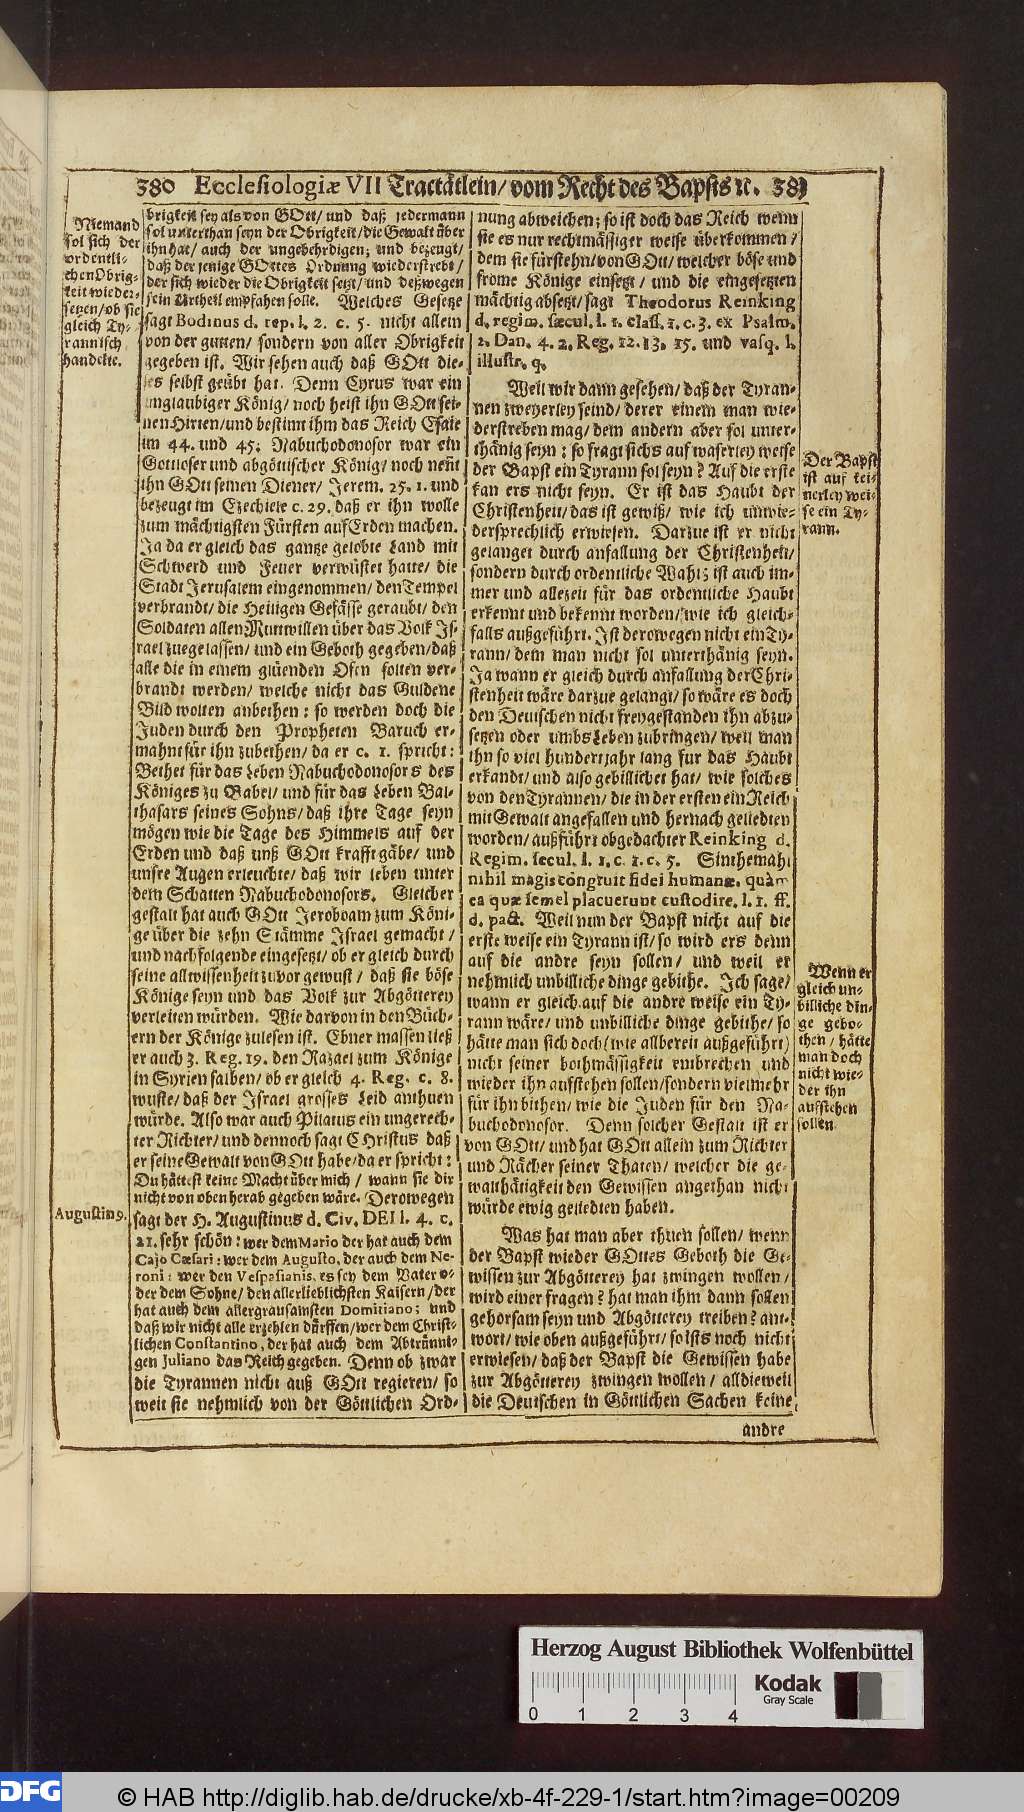 380 Ecclesiologiæ VII Tractätlein/ vom Recht des Bapsts ꝛc. 381
Niemand
sol sich der
ordentli-
chen Obrig-
keit wieder-
setzen/ ob sie
gleich Ty-
rannisch
handelte.
brigkeit sey als von GOtt/ und daß jedermann
sol unterthan seyn der Obrigkeit/ die Gewalt über
ihn hat/ auch der ungebehrdigen; und bezeugt/
daß der jenige GOttes Ordnung wiederstrebt/
der sich wieder die Obrigkeit setzt/ und deßwegen
sein Urtheil empfahen solle. Welches Gesetze
sagt Bodinus d. rep. l. 2. c. 5. nicht allein
von der gutten/ sondern von aller Obrigkeit
gegeben ist. Wir sehen auch daß GOtt die-
ses selbst geübt hat. Denn Cyrus war ein
unglaubiger König/ noch heist ihn GOtt sei-
nen Hirten/ und bestimt ihm das Reich Esaie
im 44. und 45; Nabuchodonosor war ein
Gottloser und abgöttischer König/ noch neñt
ihn GOtt seinen Diener/ Jerem. 25. 1. und
bezeugt im Ezechiele c. 29. daß er ihn wolle
zum mächtigsten Fürsten auf Erden machen.
Ja da er gleich das gantze gelobte Land mit
Schwerd und Feuer verwüstet hatte/ die
Stadt Jerusalem eingenommen/ den Tempel
verbrandt/ die Heiligen Gefässe geraubt/ den
Soldaten allen Muttwillen über das Volk Is-
rael zuegelassen/ und ein Geboth gegeben/ daß
alle die in einem glüenden Ofen solten ver-
brandt werden/ welche nicht das Guldene
Bild wolten anbethen: so werden doch die
Juden durch den Propheten Baruch er-
mahnt für ihn zubethen/ da er c. 1. spricht:
Bethet für das Leben Nabuchodonosors des
Königes zu Babel/ und für das Leben Bal-
thasars seines Sohns/ daß ihre Tage seyn
mögen wie die Tage des Himmels auf der
Erden und daß unß GOtt krafft gäbe/ und
unsre Augen erleuchte/ daß wir leben unter
dem Schatten Nabuchodonosors. Gleicher
gestalt hat auch GOtt Jeroboam zum Köni-
ge über die zehn Stämme Israel gemacht/
und nachfolgende eingesetzt/ ob er gleich durch
seine allwissenheit zuvor gewust/ daß sie böse
Könige seyn und das Volk zur Abgötterey
verleiten würden. Wie darvon in den Büch-
ern der Könige zulesen ist. Ebner massen ließ
er auch 3. Reg. 19. den Hazael zum Könige
in Syrien salben/ ob er gleich 4. Reg. c. 8.
wuste/ daß der Israel grosses Leid anthuen
würde. Also war auch Pilatus ein ungerech-
ter Richter/ und dennoch sagt CHristus daß
er seine Gewalt von GOtt habe/ da er spricht:
Du hättest keine Macht über mich/ wann sie dir
nicht von oben herab gegeben wäre. Derowegen
Augustinꝰ.
sagt der H. Augustinus d. Civ. DEI l. 4. c.
21. sehr schön: wer dem Mario der hat auch dem
Cajo Cæsari: wer dem Augusto, der auch dem Ne-
roni: wer den Vespasianis, es sey dem Vater o-
der dem Sohne/ den allerlieblichsten Kaisern/ der
hat auch dem allergrausamsten Domitiano; und
daß wir nicht alle erzehlen dürffen/ wer dem Christ-
lichen Constantino, der hat auch dem Abtrünni-
gen Juliano das Reich gegeben. Denn ob zwar
die Tyrannen nicht auß GOtt regieren/ so
weit sie nehmlich von der Göttlichen Ord-
nung abweichen; so ist doch das Reich wenn
sie es nur rechtmässiger weise überkommen/
dem sie fürstehn/ von GOtt/ welcher böse und
frome Könige einsetzt/ und die eingesetzten
mächtig absetzt/ sagt Theodorus Reinking
d. regim. sæcul. l. 1. class. 1. c. 3. ex Psalm.
2. Dan. 4. 2. Reg. 12. 13. 15. und vasq. l.
illustr. q.
Weil wir dann gesehen/ daß der Tyran-
nen zweyerley seind/ derer einem man wie-
derstreben mag/ dem andern aber sol unter-
thänig seyn: so fragt sichs auf waserley weise
der Bapst ein Tyrann sol seyn? Auf die erste
kan ers nicht seyn. Er ist das Haubt der
Christenheit/ das ist gewiß/ wie ich unwie-
dersprechlich erwiesen. Darzue ist er nicht
gelanget durch anfallung der Christenheit/
sondern durch ordentliche Wahl; ist auch im-
mer und allezeit für das ordentliche Haubt
erkennt und bekennt worden/ wie ich gleich-
falls außgeführt. Ist derowegen nicht ein Ty-
rann/ dem man nicht sol unterthänig seyn.
Ja wann er gleich durch anfallung der Chri-
stenheit wäre darzue gelangt/ so wäre es doch
den Deutschen nicht freygestanden ihn abzu-
setzen oder umbs Leben zubringen/ weil man
ihn so viel hundert jahr lang fur das Haubt
erkandt/ und also gebillichet hat/ wie solches
von den Tyrannen/ die in der ersten ein Reich
mit Gewalt angefallen und hernach geliedten
worden/ außführt obgedachter Reinking d.
Regim. secul. l. 1. c. 1. c. 5. Sinthemahl
nihil magis congruit fidei humanæ, quàm
ea quæ semel placuerunt custodire. l. 1. ff.
d. pact. Weil nun der Bapst nicht auf die
erste weise ein Tyrann ist/ so wird ers denn
auf die andre seyn sollen/ und weil er
nehmlich unbilliche dinge gebithe. Ich sage/
wann er gleich auf die andre weise ein Ty-
rann wäre/ und unbilliche dinge gebithe/ so
hätte man sich doch (wie allbereit außgeführt)
nicht seiner bothmässigkeit entbrechen und
wieder ihn aufstehen sollen/ sondern vielmehr
für ihn bithen/ wie die Juden für den Na-
buchodonosor. Denn solcher Gestalt ist er
von GOtt/ und hat GOtt allein zum Richter
und Rächer seiner Thaten/ welcher die ge-
walthätigkeit den Gewissen angethan nicht
würde ewig geliedten haben.
Was hat man aber thuen sollen/ wenn
der Bapst wieder GOttes Geboth die Ge-
wissen zur Abgötterey hat zwingen wollen/
wird einer fragen? hat man ihm dann sollen
gehorsam seyn und Abgötterey treiben? ant-
wort/ wie oben außgeführt/ so ists noch nicht
erwiesen/ daß der Bapst die Gewissen habe
zur Abgötterey zwingen wollen/ alldieweil
die Deutschen in Göttlichen Sachen keine
andre
Der Bapst
ist auf kei-
nerley wei-
se ein Ty-
rann.
Wenn er
gleich un-
billiche din-
ge gebo-
then/ hätte
man doch
nicht wie-
der ihn
aufstehen
sollen.
Herzog August Bibliothek Wolfenbüttel
Kodak
Gray Scale
0 1 2 3 4
DFG
© HAB http://diglib.hab.de/drucke/xb-4f-229-1/start.htm?image=00209